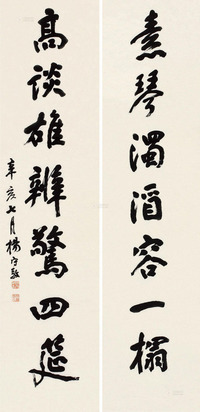 素琴濁酒容一榻
高談雄辨驚四筵
辛亥七月楊守敬